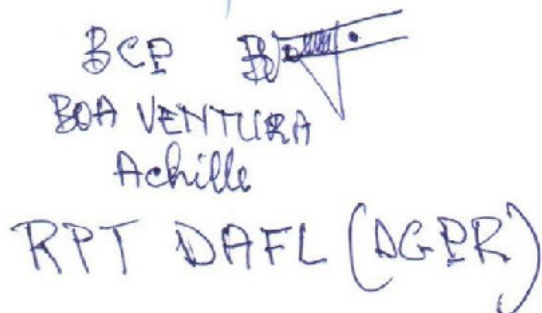 BCP
BOA VENTURA
Achille
RPT DAFL (DGPR)